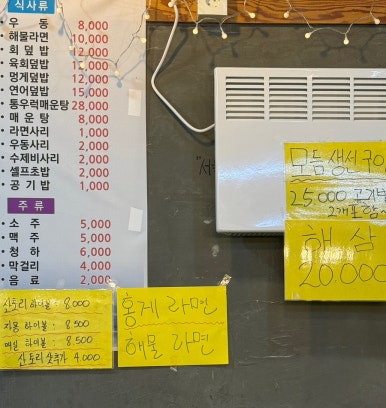 식사류
우 동 8,000
해물라면 10,000
회 덮 밥 12,000
육회덮밥 12,000
멍게덮밥 12,000
연어덮밥 15,000
통우럭매운탕 28,000
매 운 탕 8,000
라면사리 1,000
우동사리 2,000
수제비사리 2,000
셀프초밥 2,000
공 기 밥 1,000
주 류
소 주 5,000
맥 주 5,000
청 하 6,000
막걸리 4,000
음 료 2,000
산토리 하이볼 : 8.000
자몽 하이볼 : 8.500
매실 하이볼 : 8.500
산토리 샷추가 4.000
홍게 라면
해물 라면
모듬 생선구이
25,000 공기밥
2개포함
해 삼
20.000